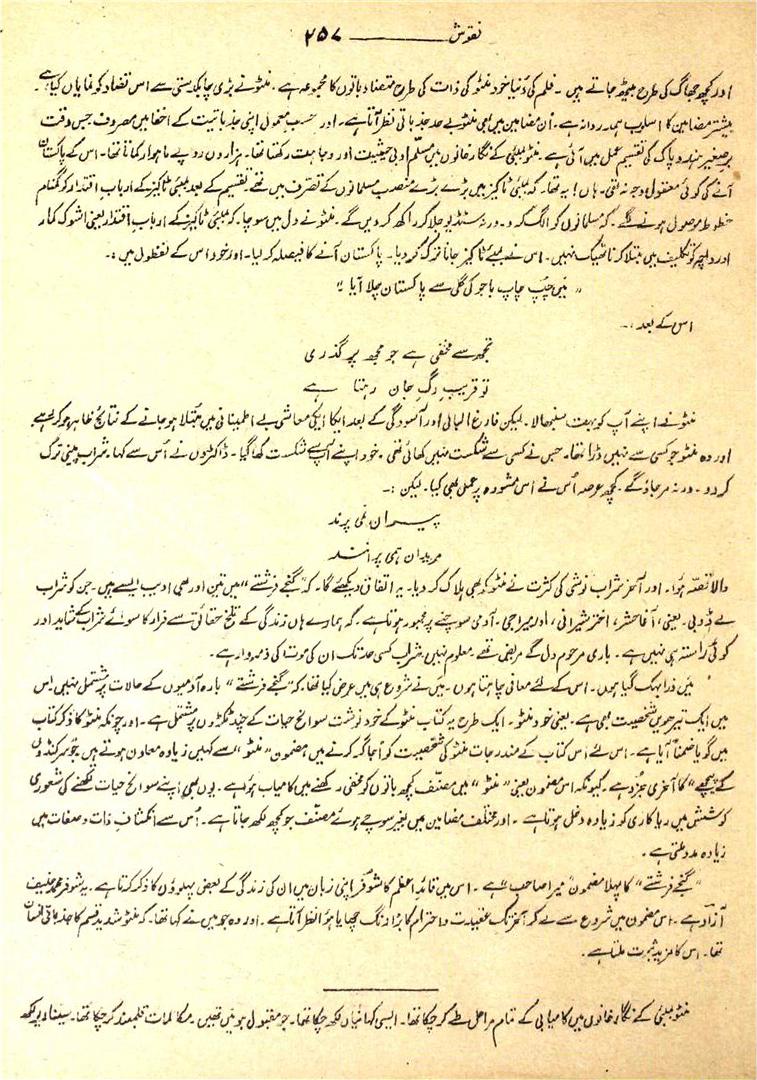 نقوش ــــــــــ ۲۵۷
اور کچھ جھاگ کی طرح بیٹھ جاتے ہیں ۔ فلم کی دُنیا خود منٹو کی ذات کی طرح متضاد باتوں کا مجموعہ ہے ۔ منٹو نے بڑی چابکدستی سے اس تضاد کو نمایاں کیا ہے ۔
بیشتر مضامین کا اسلوب ہمدردانہ ہے ۔ اُن مضامین میں بھی منٹو بے حد جذباتی نظر آتا ہے ۔ اور حسبِ معمول اپنی جذباتیت کے اخفا میں مصروف جس وقت
برِصغیر ہند و پاک کی تقسیم عمل میں آئی ہے ۔ منٹو بمبئی کے نگار خانوں میں مسلّم ادبی حیثیت اور وجاہت رکھتا تھا ۔ ہزاروں روپے ماہوار کماتا تھا ۔ اس کے پاکستان
آنے کی کوئی معقول وجہ نہ تھی ۔ ہاں ! یہ تھا ۔ کہ بمبئی ٹاکیز میں بڑے بڑے منصب مسلمانوں کے تصرف میں تھے تقسیم کے بعد بمبئی ٹاکیز کے اربابِ اقتدار کو گمنام
خطوط موصول ہونے لگے ۔ کہ مسلمانوں کو الگ کرو ۔ ورنہ سٹوڈیو جلا کر راکھ کر دیں گے ۔ منٹو نے دل میں سوچا ۔ کہ بمبئی ٹاکیز کے اربابِ اقتدار یعنی اشوک کمار
اور واچہ کو تکلیف میں مبتلا کرنا ٹھیک نہیں ۔ اس نے بمبئے ٹاکیز جانا ترک کر دیا ۔ پاکستان آنے کا فیصلہ کر لیا ۔ اور خود اس کے لفظوں میں :۔
” میں چُپ چاپ باجو کی گلی سے پاکستان چلا آیا ۔“
اس کے بعد :۔
تجھ سے مخفی ہے جو مجھ پر گذری
تو قریب رگِ جان رہتا ہے
منٹو نے اپنے آپ کو بہت سنبھالا ۔ لیکن فارغ البالی اور آسودگی کے بعد ایکا ایکی معاشی بے اطمینانی میں مبتلا ہو جانے کے نتائج ظاہر ہو کر رہے
اور وہ منٹو جو کسی سے نہیں ڈرا تھا ۔ جس نے کسی سے شکست نہیں کھائی تھی ۔ خود اپنے آپ سے شکست کھا گیا ۔ ڈاکٹروں نے اُس سے کہا ۔ شراب پینی ترک
کر دو ۔ ورنہ مر جاؤ گے ۔ کچھ عرصہ اُس نے اس مشورہ پر عمل بھی کیا ۔ لیکن :۔
پیران نمی پرند
مریدان ہمی پرانند
والا قصّہ ہُوا ۔ اور آخر شراب نوشی کی کثرت نے منٹو کو بھی ہلاک کر دیا ۔ یہ اتفاق دیکھئے گا ۔ کہ ”گنجے فرشتے“ میں تین اور بھی ادیب ایسے ہیں ۔ جن کو شراب
لے ڈوبی ۔ یعنی ، آغا حشر ، اختر شیرانی ، اور میرا جی ۔ آدمی سوچنے پر مجبور ہوتا ہے ۔ کہ ہمارے ہاں زندگی کے تلخ حقائق سے فرار کا سوائے شراب کے شاید اور
کوئی راستہ ہی نہیں ہے ۔ باری مرحوم دل کے مریض تھے ۔ معلوم نہیں شراب کسی حد تک ان کی موت کی ذمہ دار ہے ۔
میں ذرا بہک گیا ہوں ۔ اس کے لئے معافی چاہتا ہوں ۔ میں نے شروع ہی میں عرض کیا تھا ۔ کہ ”گنجے فرشتے“ بارہ آدمیوں کے حالات پر مشتمل نہیں ۔ اس
میں ایک تیرھویں شخصیت بھی ہے ۔ یعنی خود منٹو ۔ ایک طرح یہ کتاب منٹو کے خود نوشت سوانح حیات کے چند ٹکڑوں پر مشتمل ہے ۔ اور چونکہ منٹو کا ذکر کتاب
میں گویا ضمناً آیا ہے ۔ اس لئے اس کتاب کے مندرجات منٹو کی شخصیت کو اُجاگر کرنے میں مضمون ”منٹو“ سے کہیں زیادہ معاون ہوتے ہیں جو ”سرکنڈوں
کے پیچھے“ کا آخری جزُو ہے ۔ کیونکہ اس مضمون یعنی ”منٹو“ میں مصنّف کچھ باتوں کو مخفی رکھنے میں کامیاب ہُوا ہے ۔ یوں بھی اپنے سوانح حیات لکھنے کی شعوری
کوشش میں ریاکاری کو زیادہ دخل ہوتا ہے ۔ اور مختلف مضامین میں بغیر سوچے ہوئے مصنّف جو کچھ لکھ جاتا ہے ۔ اُس سے انکشافِ ذات و صفات میں
زیادہ مدد ملتی ہے ۔
”گنجے فرشتے“ کا پہلا مضمون ”میرا صاحب“ ہے ۔ اس میں قائدِ اعظم کا شوفر اپنی زبان میں ان کی زندگی کے بعض پہلوؤں کا ذکر کرتا ہے ۔ یہ شوفر محمد حنیف
آزاد ہے ۔ اس مضمون میں شروع سے لے کر آخر تک عقیدت و احترام کا بڑا رنگ چھایا ہُوا نظر آتا ہے ۔ اور وہ جو میں نے کہا تھا ۔ کہ منٹو شدید قسم کا جذباتی انسان
تھا ۔ اس کا مزید ثبوت ملتا ہے ۔
منٹو بمبئی کے نگار خانوں میں کامیابی کے تمام مراحل طے کر چکا تھا ۔ ایسی کہانیاں لکھ چکا تھا ۔ جو مقبول ہوئیں تھیں ۔ مکالمات قلمبند کر چکا تھا ۔ سیناریو لکھ